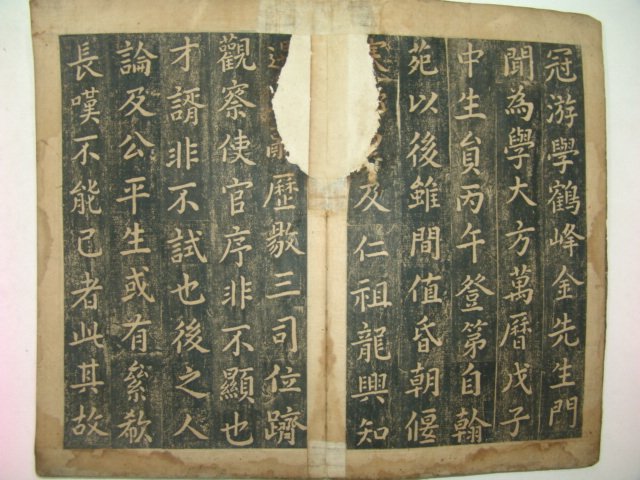 冠游學鶴峰金先生門
聞為學大方萬曆戊子
中生員丙午登第自翰
苑以後雖間值昏朝偃
及仁祖龍興知
歷敭三司位躋
觀察使官序非不顯也
才諝非不試也後之人
論及公平生或有縈欷
長嘆不能已者此其故